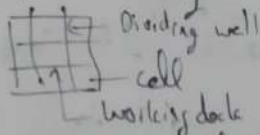 Dividing well
cell
Working deck